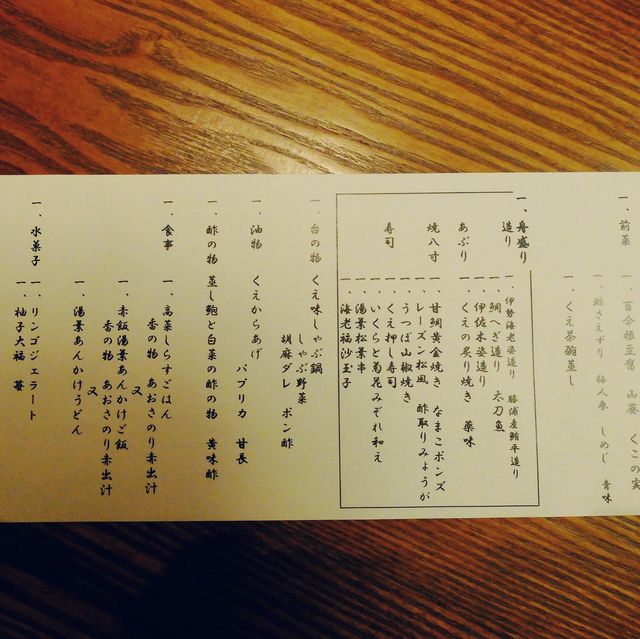 一、前菜
一、百合根豆腐　山葵　くこの実
一、鯨さえずり　梅人参　しめじ　青味
一、くえ茶碗蒸し
一、舟盛り
造り
一、伊勢海老姿造り　勝浦産鮪平造り
一、鯛へぎ造り　太刀魚
伊佐木姿造り
あぶり
一、くえの炙り焼き　薬味
焼八寸
一、甘鯛黄金焼き　なまこポンズ
一、レーズン松風　酢取りみょうが
一、うつぼ山椒焼き
寿司
一、くえ押し寿司
一、いくらと菊花みぞれ和え
一、湯葉松葉串
一、海老福沙玉子
一、台の物　くえ味しゃぶ鍋
しゃぶ野菜
胡麻ダレ　ポン酢
一、油物　くえからあげ
パプリカ　甘長
一、酢の物　蒸し鮑と白菜の酢の物　黄味酢
一、食事　一、高菜しらすごはん
香の物　あおさのり赤出汁
又
一、赤飯湯葉あんかけご飯
香の物　あおさのり赤出汁
又
一、湯葉あんかけうどん
一、水菓子　一、リンゴジェラート
一、柚子大福　苺